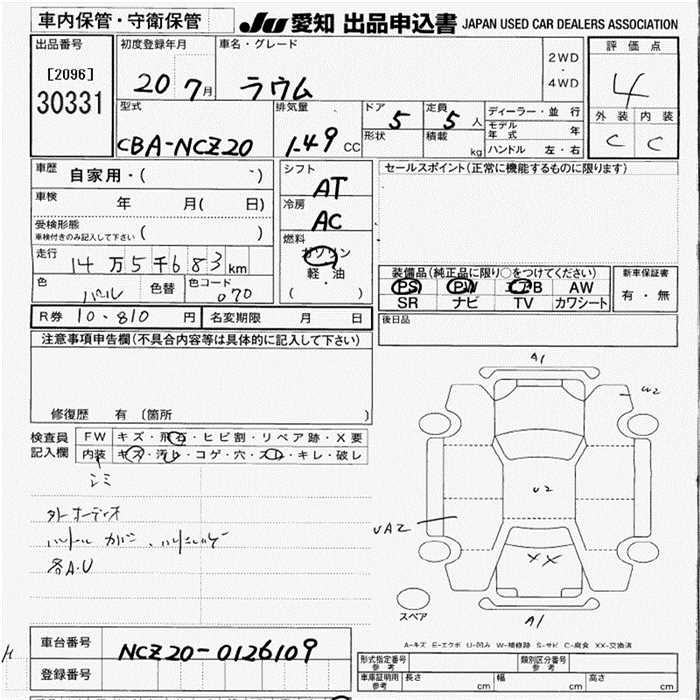 車内保管・守衛保管
JU 愛知 出品申込書 JAPAN USED CAR DEALERS ASSOCIATION
出品番号
[2096]
30331
初度登録年月
20 7月
車名・グレード
ラウム
2WD
・
4WD
評価点
4
外装 内装
C C
型式
CBA-NCZ20
排気量
1.49 CC
ドア 5
形状
定員 5 人
積載 kg
ディーラー・並行
モデル年式 年
ハンドル 左・右
車歴 自家用・( )
車検 年 月( 日)
受検形態
車検付きのみ記入して下さい ( )
走行 14万5千683km
色 パール 色替 色コード 070
シフト
AT
冷房
AC
燃料
ガソリン
軽・油
( )
セールスポイント(正常に機能するものに限ります)
装備品(純正品に限り○をつけてください)
PS PW エアB AW
SR ナビ TV カワシート
新車保証書
有・無
R券 10.810 円 名変期限 月 日
後日品
注意事項申告欄(不具合内容等は具体的に記入して下さい)
修復歴 有〔箇所 〕
検査員
記入欄
FW キズ・飛石・ヒビ割・リペア跡・X要
内装 キズ・汚レ・コゲ・穴・スレ・キレ・破レ
シミ
外オーディオ
各A.U
A1
W2
U2
UA2
XX
A1
スペア
A-キズ E-エクボ U-凹み W-補修跡 S-サビ C-腐食 XX-交換済
車台番号 NCZ20-0126109
登録番号
形式指定番号
参考
類別区分番号
参考
車庫証明用
参考
長さ cm 幅 cm 高さ cm